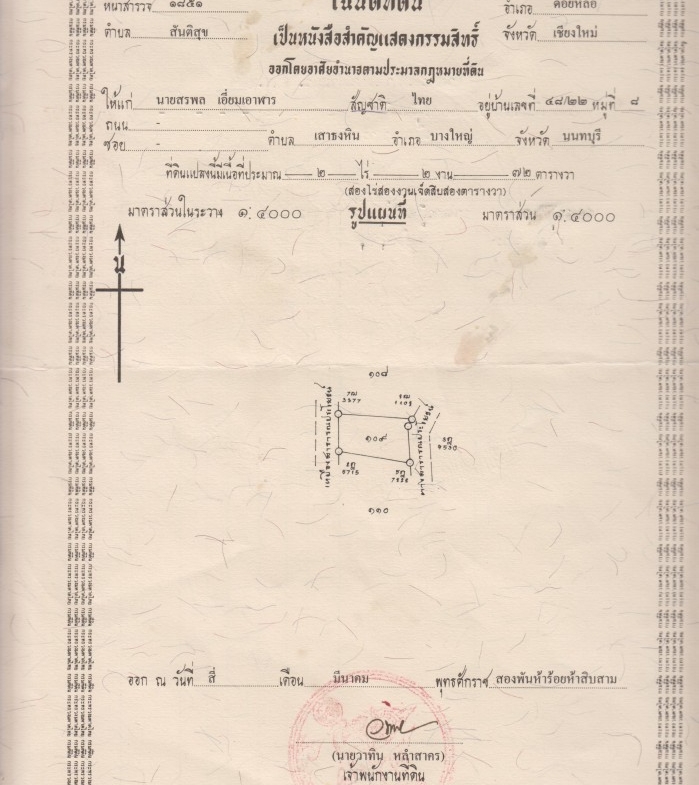 หน้าสำรวจ ๑๘๕๑ โฉนดที่ดิน อำเภอ ดอยหล่อ
ตำบล สันติสุข เป็นหนังสือสำคัญแสดงกรรมสิทธิ์ จังหวัด เชียงใหม่
ออกโดยอาศัยอำนาจตามประมวลกฎหมายที่ดิน
ให้แก่ นายสรพล เอี่ยมเอาฬาร สัญชาติ ไทย อยู่บ้านเลขที่ ๔๘/๒๒ หมู่ที่ ๘
ถนน -
ซอย - ตำบล เสาธงหิน อำเภอ บางใหญ่ จังหวัด นนทบุรี
ที่ดินแปลงนี้มีเนื้อที่ประมาณ ๒ ไร่ ๒ งาน ๗๒ ตารางวา
(สองไร่สองงานเจ็ดสิบสองตารางวา)
มาตราส่วนในระวาง ๑:๔๐๐๐ รูปแผนที่ มาตราส่วน ๑:๔๐๐๐
น
๑๐๘
๑๐๙
๑๑๐
ออก ณ วันที่ สี่ เดือน มีนาคม พุทธศักราช สองพันห้าร้อยห้าสิบสาม
(นายวาทิน หล้าสาคร)
เจ้าพนักงานที่ดิน